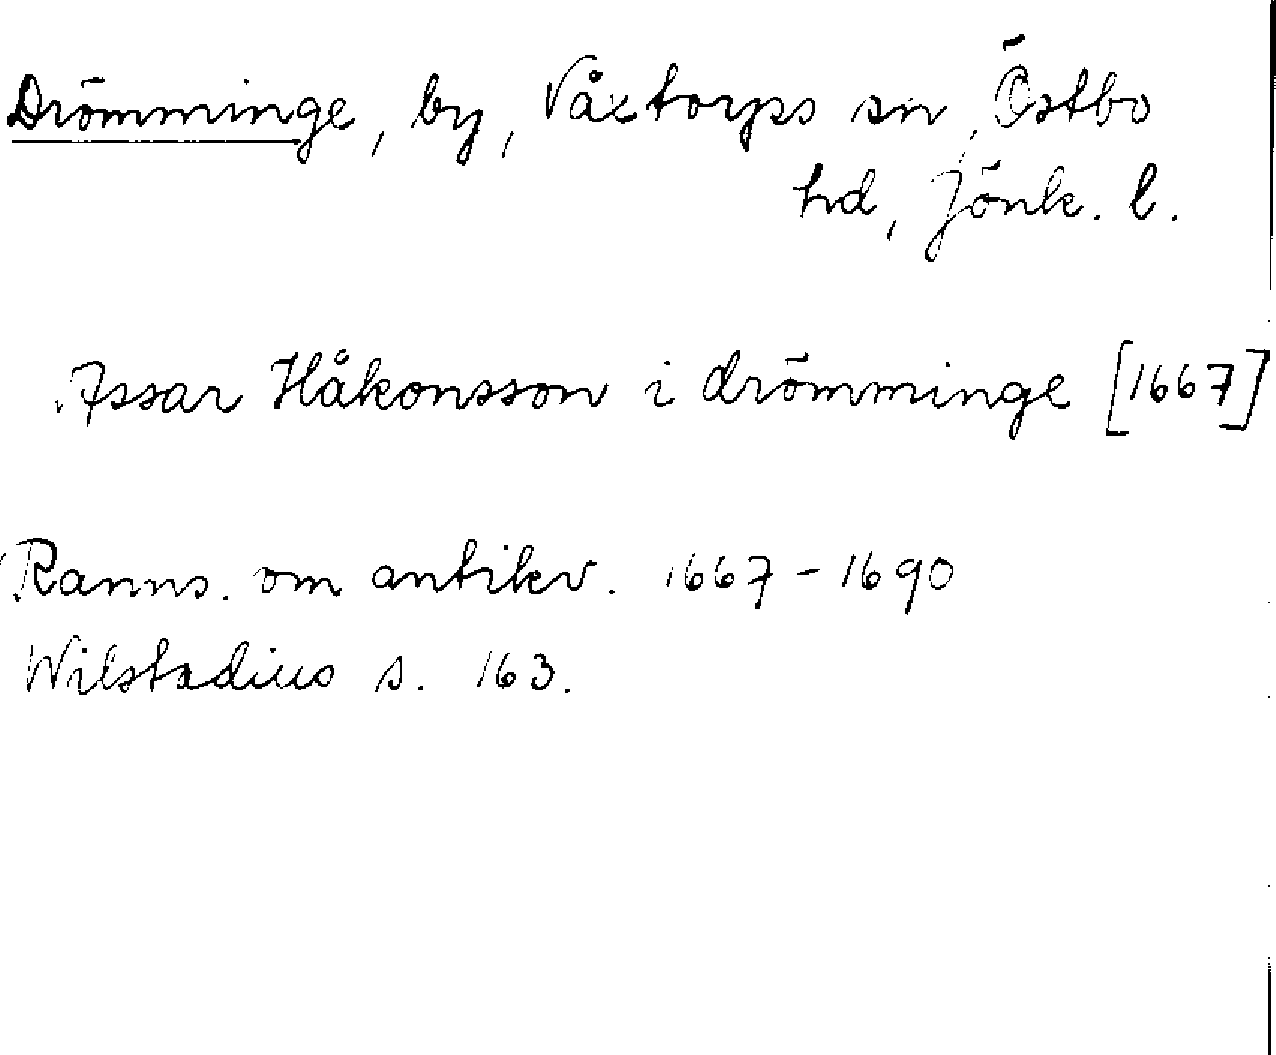 Drömminge, by, Våxtorps sn, Östbo
hd, Jönk. l.
Assar Håkonsson i drömminge [1667]
Ranns. om antikv. 1667-1690
Wilstadius s. 163.